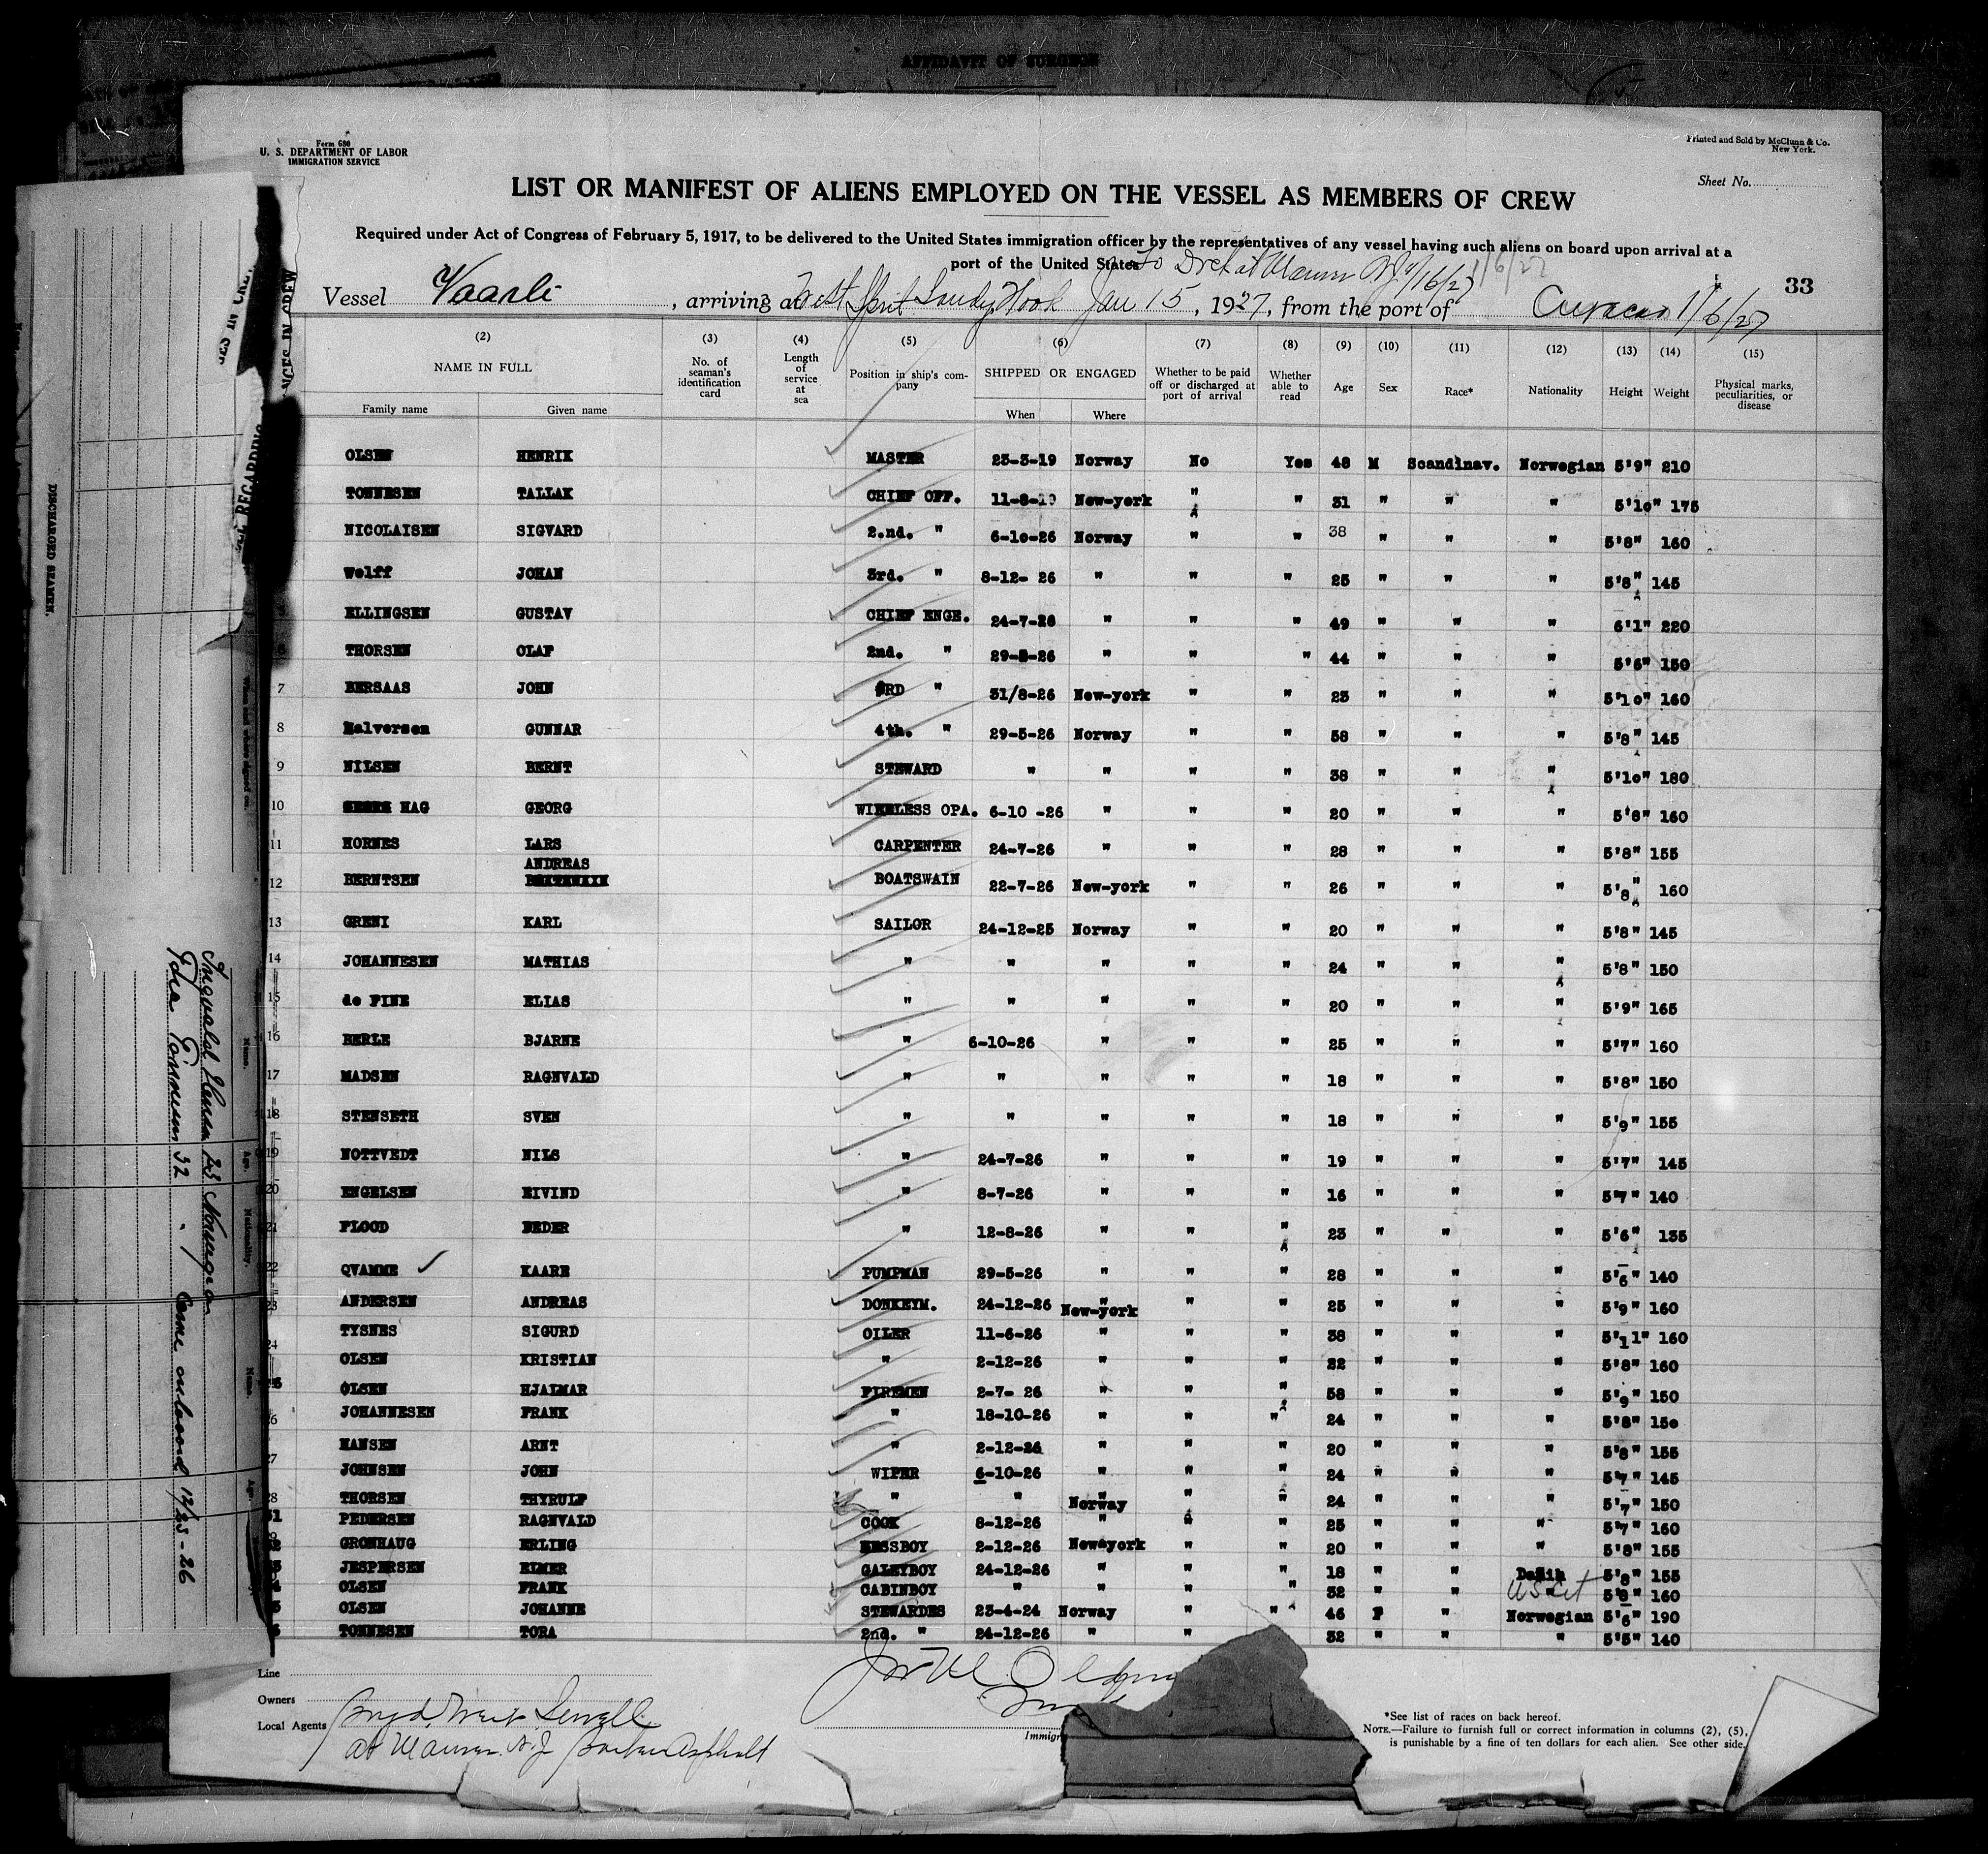 AFFIDAVIT OF SURGEON
Form 680
U. S. DEPARTMENT OF LABOR
IMMIGRATION SERVICE
Printed and Sold by McClunn & Co.
New York.
Sheet No.
LIST OR MANIFEST OF ALIENS EMPLOYED ON THE VESSEL AS MEMBERS OF CREW
Required under Act of Congress of February 5, 1917, to be delivered to the United States immigration officer by the representatives of any vessel having such aliens on board upon arrival at a
port of the United States
33
Vessel Vaarli, arriving at Sandy Hook Jan 15, 1927, from the port of Curacao 1/6/27
(2) (3) (4) (5) (6) (7) (8) (9) (10) (11) (12) (13) (14) (15)
NAME IN FULL No. of seaman's identification card Length of service at sea Position in ship's company SHIPPED OR ENGAGED Whether to be paid off or discharged at port of arrival Whether able to read Age Sex Race* Nationality Height Weight Physical marks, peculiarities, or disease
Family name Given name When Where
OLSEN HENRIK MASTER 23-3-19 Norway No Yes 48 M Scandinav. Norwegian 5'9" 210
TONNESEN TALLAK CHIEF OFF. 11-8-19 New-york " " 31 " " " 5'10" 175
NICOLAISEN SIGVARD 2.nd. " 6-10-26 Norway " " 38 " " " 5'8" 160
Wolff JOHAN 3rd. " 8-12- 26 " " " 25 " " " 5'8" 145
ELLINGSEN GUSTAV CHIEF ENGE. 24-7-26 " " " 49 " " " 6'1" 220
6 THORSEN OLAF 2nd. " 29-5-26 " " " 44 " " " 5'6" 150
7 BERSAAS JOHN 3RD " 31/8-26 New-york " " 23 " " " 5'10" 160
8 Halvorsen GUNNAR 4th. " 29-5-26 Norway " " 58 " " " 5'8" 145
9 NILSEN BERNT STEWARD " " " " 38 " " " 5'10" 180
10 HAG GEORG WIRELESS OPA. 6-10 -26 " " " 20 " " " 5'8" 160
11 HORNES LARS CARPENTER 24-7-26 " " " 28 " " " 5'8" 155
ANDREAS
12 BERNTSEN BOATSWAIN BOATSWAIN 22-7-26 New-york " " 26 " " " 5'8" 160
13 GRENI KARL SAILOR 24-12-25 Norway " " 20 " " " 5'8" 145
14 JOHANNESEN MATHIAS " " " " " 24 " " " 5'8" 150
15 de FINE ELIAS " " " " " 20 " " " 5'9" 165
16 BERLE BJARNE " 6-10-26 " " " 25 " " " 5'7" 160
17 MADSEN RAGNVALD " " " " " 18 " " " 5'8" 150
18 STENSETH SVEN " " " " " 18 " " " 5'9" 155
19 NOTTVEDT NILS " 24-7-26 " " " 19 " " " 5'7" 145
20 ENGELSEN EIVIND " 8-7-26 " " " 16 " " " 5'7" 140
21 FLOOD PEDER " 12-8-26 " " " 23 " " " 5'6" 135
22 QVAMME KAARE PUMPMAN 29-5-26 " " " 28 " " " 5'6" 140
23 ANDERSEN ANDREAS DONKEYM. 24-12-26 New-york " " 25 " " " 5'9" 160
24 TYSNES SIGURD OILER 11-6-26 " " " 38 " " " 5'11" 160
OLSEN KRISTIAN " 2-12-26 " " " 22 " " " 5'8" 160
OLSEN HJALMAR FIREMEN 2-7- 26 " " " 58 " " " 5'9" 150
JOHANNESEN FRANK " 18-10-26 " " " 24 " " " 5'8" 150
HANSEN ARNT " 2-12-26 " " " 20 " " " 5'8" 155
JOHNSEN JOHN WIPER 6-10-26 " " " 24 " " " 5'7" 145
THORSEN THYRULF " " Norway " " 24 " " " 5'7" 150
PEDERSEN RAGNVALD COOK 8-12-26 " " " 25 " " " 5'7" 160
GRONHAUG ERLING MESSBOY 2-12-26 Newyork " " 20 " " " 5'8" 155
JESPERSEN ELMER GALEYBOY 24-12-26 " " " 18 " " Danih 5'8" 155
OLSEN FRANK CABINBOY " " " " 32 " " US Cit 5'8" 160
OLSEN JOHANNE STEWARDES 23-4-24 Norway " " 46 F " Norwegian 5'6" 190
TONNESEN TORA 2nd. " 24-12-26 " " 32 " " " 5'5" 140
Line
Owners
Local Agents
at Maurer N.J. Barber Asphalt
*See list of races on back hereof.
NOTE.—Failure to furnish full or correct information in columns (2), (5),
is punishable by a fine of ten dollars for each alien. See other side.
DISCHARGED SEAMEN.
Name. Age. Nationality. Name. Age.
23 Norwegian
32 " Came onboard 12/23-26